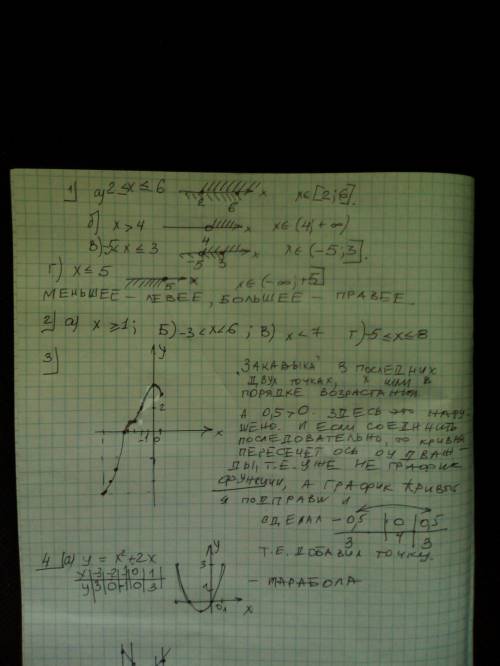 1) а) 2 ≤ x ≤ 6 2 6 x x∈[2;6].
б) x > 4 4 x x∈(4;+∞)
в) -5<x ≤ 3 -5 3 x x∈(-5;3].
г) x ≤ 5 5 x x∈(-∞;+5]
МЕНЬШЕЕ – ЛЕВЕЕ, БОЛЬШЕЕ – ПРАВЕЕ
2) а) x ≥ 1; Б) -3 < x < 6; В) x < 7 Г) -5 ≤ x ≤ 8
3) y 2 -1 0 x
"ЗАКАВЫКА" В ПОСЛЕДНИХ
ДВУХ ТОЧКАХ, X ШЛИ В
ПОРЯДКЕ ВОЗРАСТАНИЯ
А 0,5>0. ЗДЕСЬ ЭТО НАРУ-
ШЕНО. И ЕСЛИ СОЕДИНИТЬ
ПОСЛЕДОВАТЕЛЬНО, ТО КРИВАЯ
ПЕРЕСЕЧЕТ ОСЬ OY ДВАЖ-
ДЫ, Т.Е. УЖЕ НЕ ГРАФИК
ФУНКЦИИ, А ГРАФИК КРИВОЙ
Я ПОДПРАВИЛ
СДЕЛАЛ -0,5 | 0 | 0,5
3 | 4 | 3
Т.Е. ДОБАВИЛ ТОЧКУ.
4) а) y = x² + 2x
x -3 -2 -1 0 1
y 3 0 -1 0 3
y 3 0 1 x
– ПАРАБОЛА